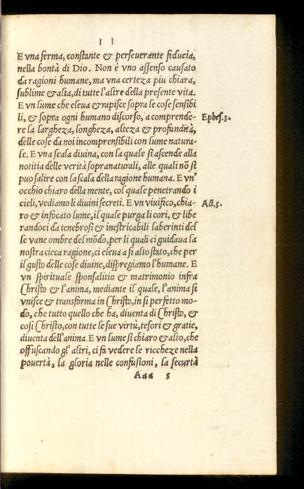 I I
E vna ferma, constante & perseuerante fiducia,
nella bontà di Dio. Non è vno assenso causato
da ragioni humane, ma vna certeza piu chiara,
sublime & alta, di tutte l'altre della presente vita.
E vn lume che eleua & rapisce sopra le cose sensibi
li, & sopra ogni humano discorso, a comprende-
re la largheza, longheza, alteza & profundità,
Ephes.3.
delle cose da noi incomprensibili con lume natura-
le. E vna scala diuina, con la quale si ascende alla
notitia delle verità sopranaturali, alle quali nõ si
puo salire con la scala della ragione humana. E vn'
occhio chiaro della mente, col quale penetrando i
cieli, vediamo li diuini secreti. E vn viuifico, chia-
Act.5.
ro & infocato lume, il quale purga li cori, & libe
randoci da tenebrosi & inestricabili laberinti del
le vane ombre del mõdo, per li quali ci guidaua la
nostra cieca ragione, ci eleua a sì alto stato, che per
il gusto delle cose diuine, dispregiamo l'humane. E
vn spirituale sponsalitio & matrimonio infra
Christo & l'anima, mediante il quale, l'anima si
vnisce & transforma in Christo, in sì perfetto mo-
do, che tutto quello che ha, diuenta di Christo, &
cosi Christo, con tutte le sue virtù, tesori & gratie,
diuenta dell'anima. E vn lume sì chiaro & alto, che
offuscando gl'altri, ci fa vedere le riccheze nella
pouertà, la gloria nelle confusioni, la securtà
Aaa 5